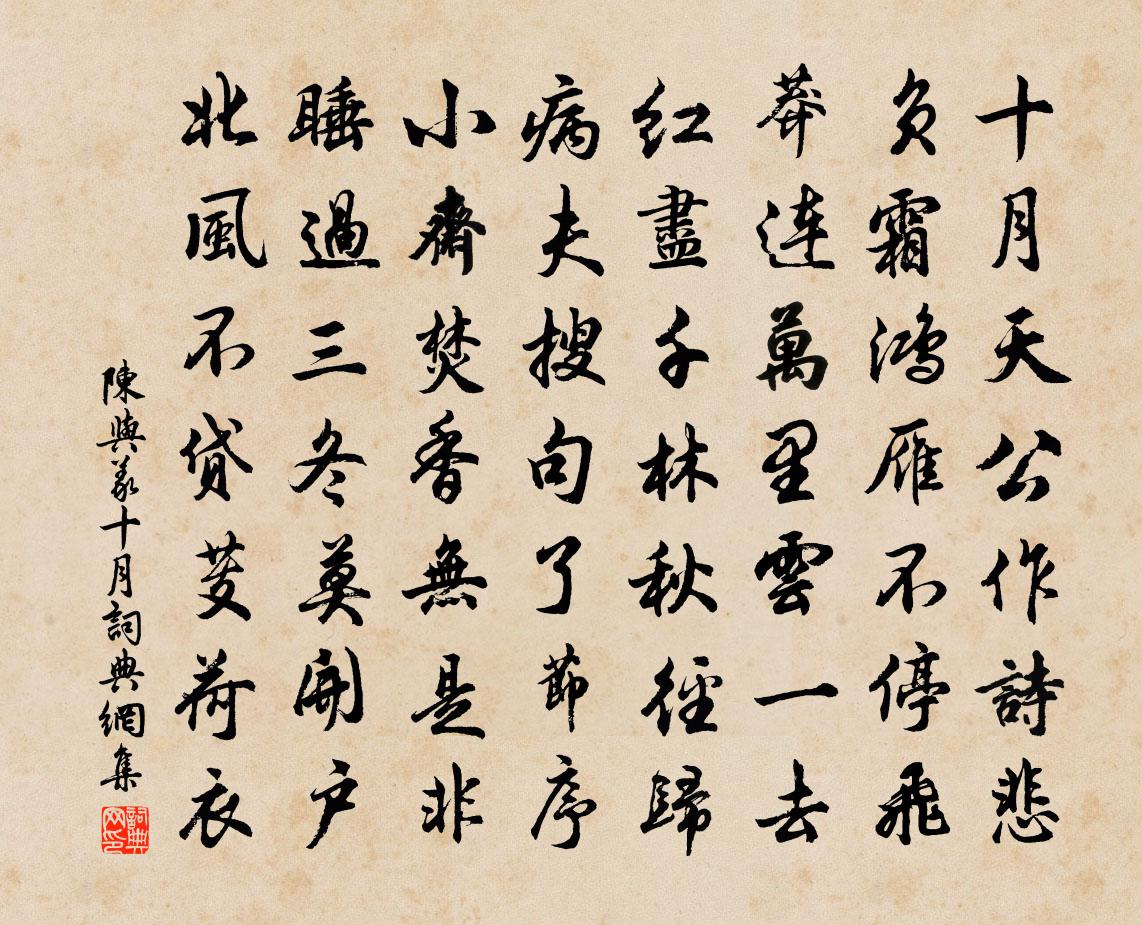 十月天公作詩悲
負霜鴻雁不停飛
莽連萬里雲一去
紅盡千林秋徑歸
病夫搜句了節序
小齋焚香無是非
睡過三冬莫開戶
北風不貸芰荷衣
陳與義十月詞典網集
詞典網印